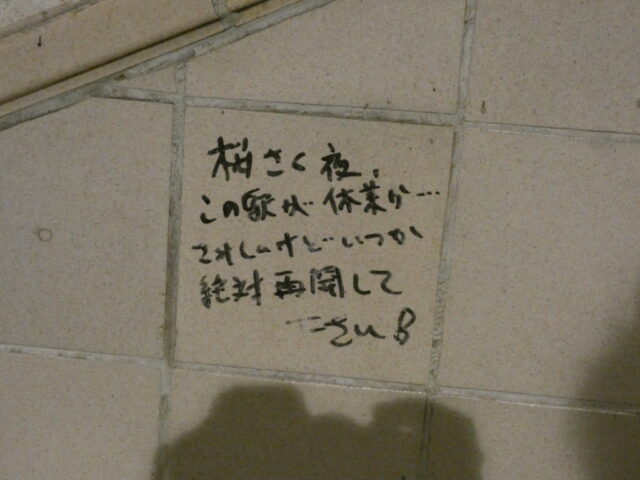 桜さく夜、
この駅が 休業か…
さみしいけど いつか
絶対再開して
下さい!